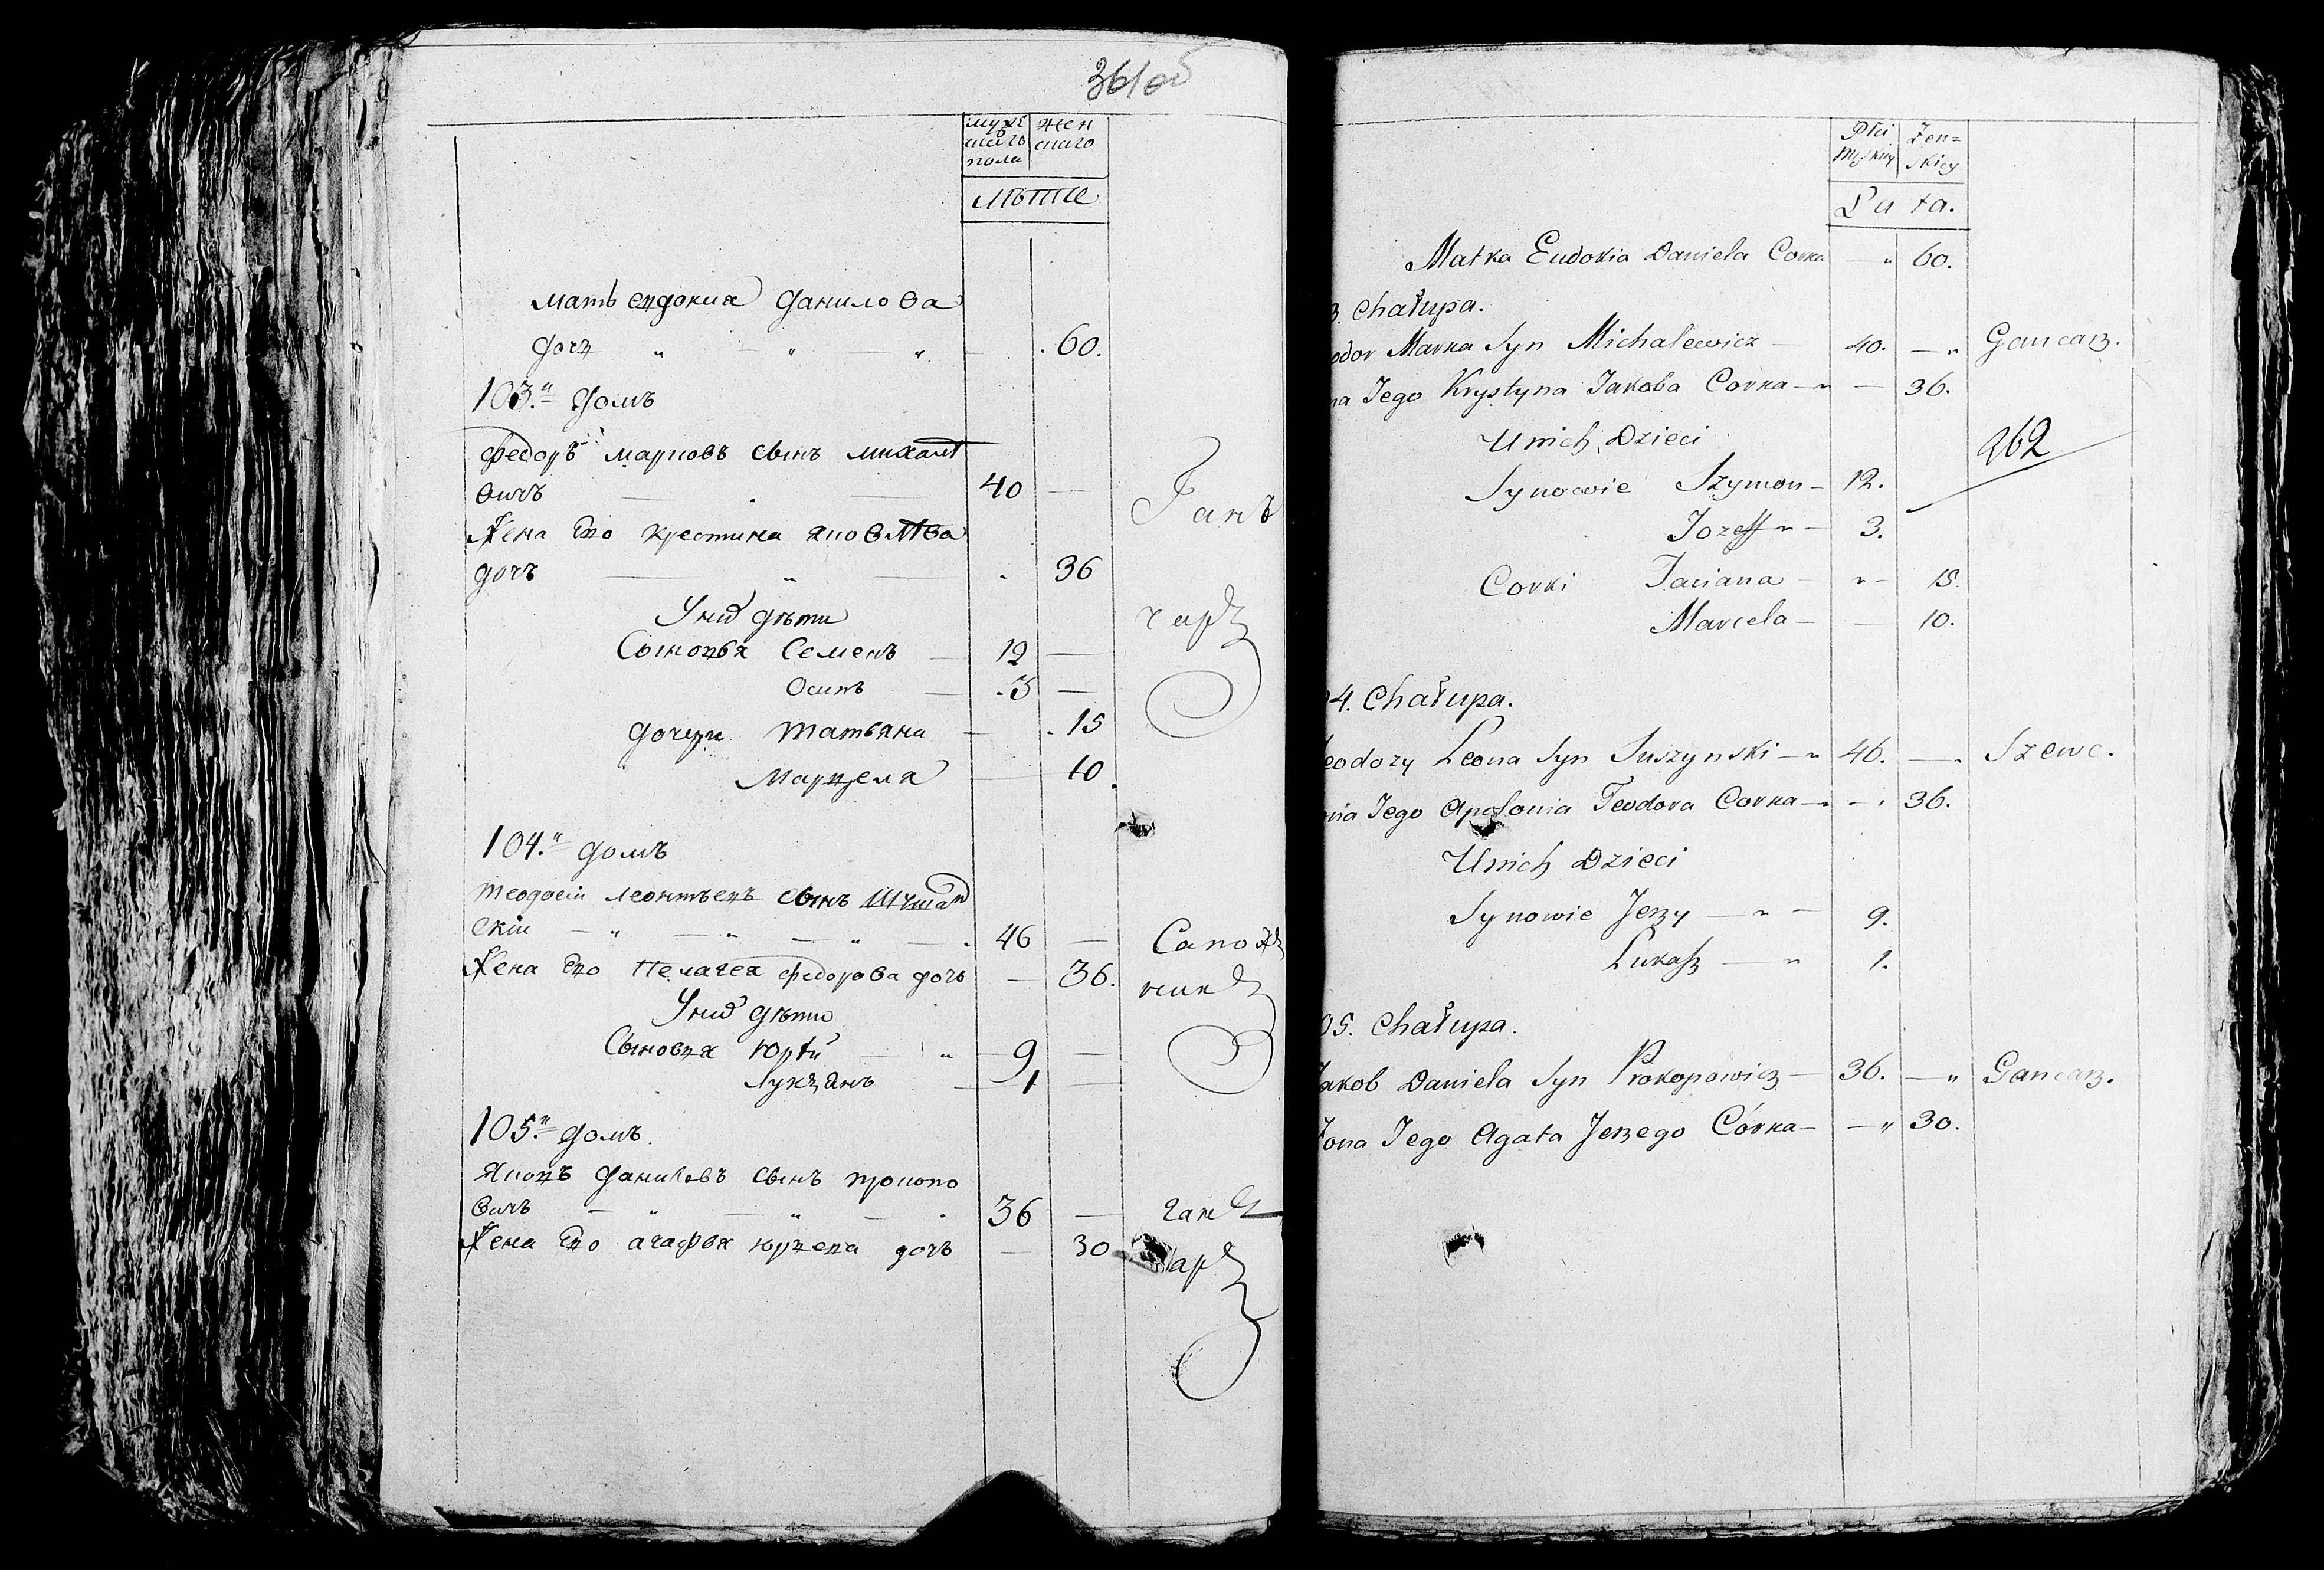 361об
мужескаго пола
женскаго
лѣте
мать евдокия данилова
дочъ 60.
103.й домъ
федоръ марковъ сынъ михале
вичъ 40
жена его крестина яковлева
дочъ 36
У них дѣти
Сыновья Семенъ 12
Осипъ 3
дочери татьяна 15
марцеля 10
Ганъ
чаръ
104.й домъ
теодосiй леонтьевъ сынъ
скiй 46
жена его Пелагея федорова дочъ 36.
Сапож
никъ
У них дѣти
Сыновья Юрей 9
Лукьянъ 1
105.й домъ.
Яковъ даниловъ сынъ прокопо
вичъ 36
жена его агафья юрьева дочъ 30
ганч
аръ
Płci Męskiey
Żenskiey
Lata.
Matka Eudokia Daniela Corka 60.
3. Chałupa.
odor Marka Syn Michalewicz 40. Gancarz.
na Jego Krystyna Jakoba Corka 36.
262
U nich Dzieci
Synowie Szymon 12.
Jozeff 3.
Corki Taciana 15.
Marcela 10.
04. Chałupa.
eodozy Leona Syn Suszynski 46. Szewc.
ona Jego Apolonia Teodora Corka 36.
U nich Dzieci
Synowie Jerzy 9.
Lukasz 1.
05. Chałupa.
Jakob Daniela Syn Prokopowicz 36. Gancarz.
Żona Jego Agata Jerzego Córka 30.